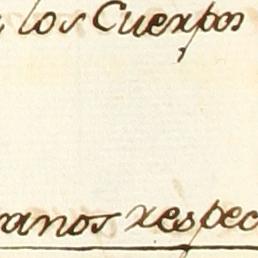 los Cuerpos
anos respec